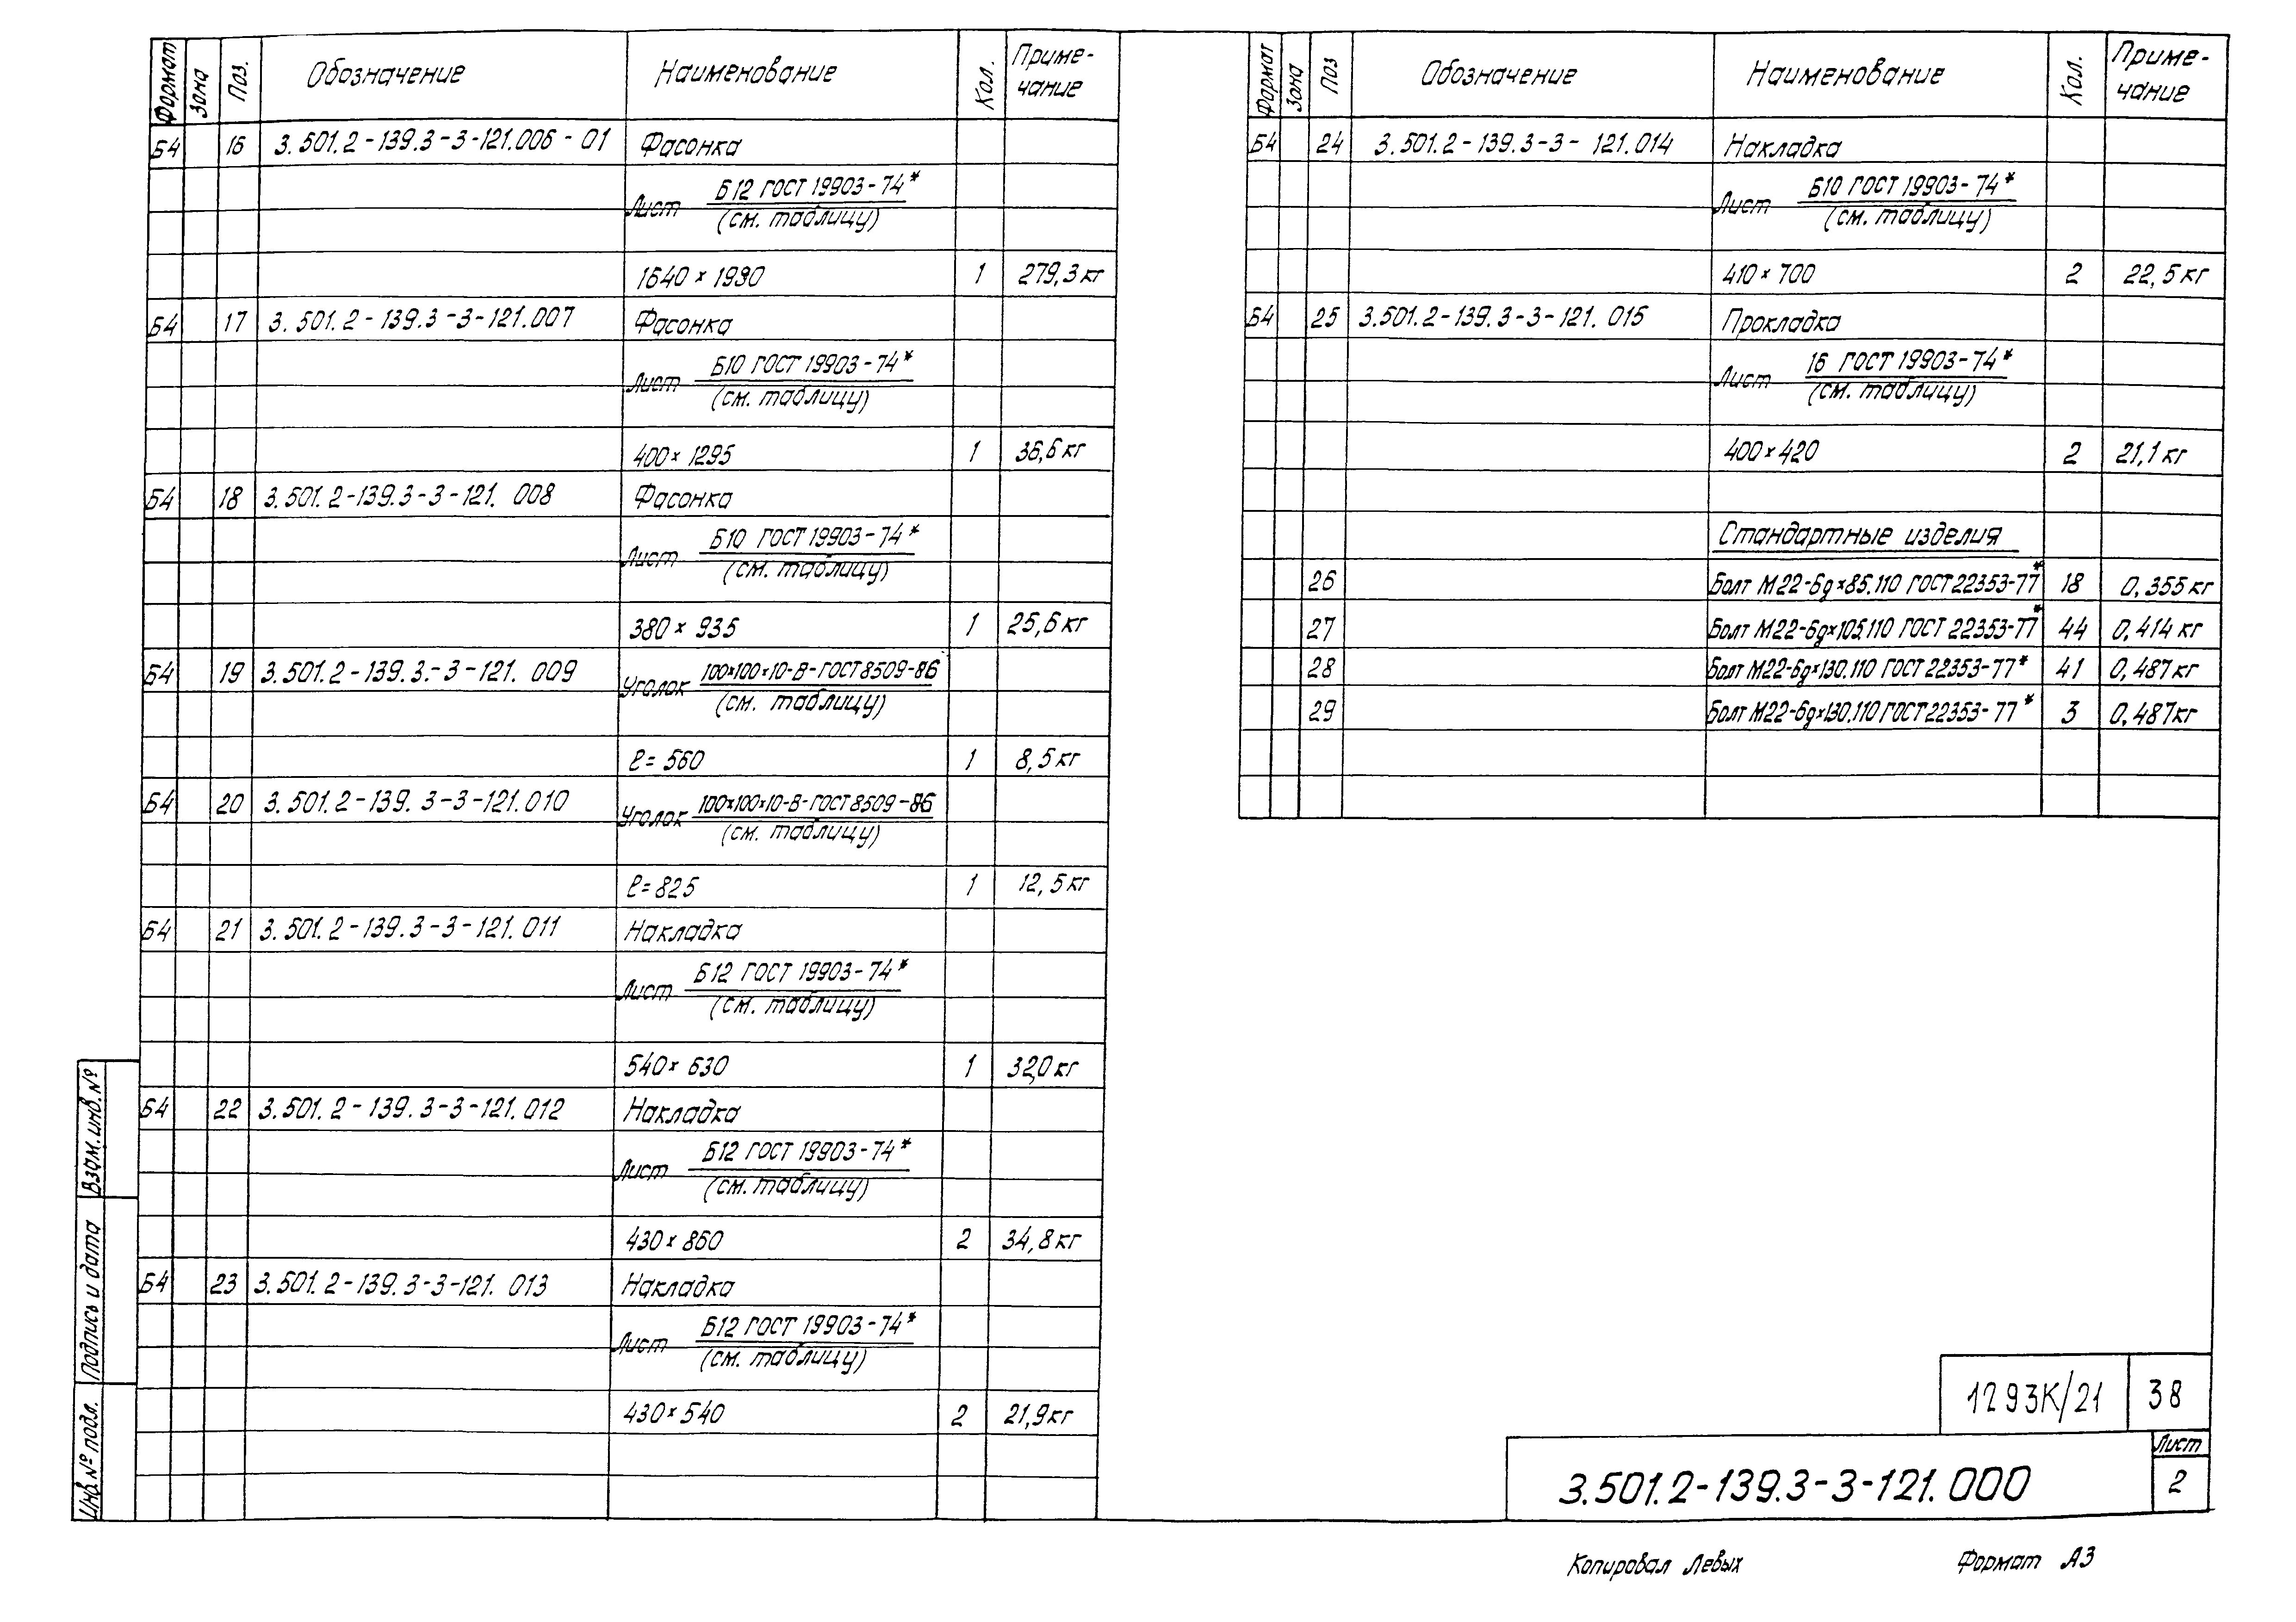 Формат Зона Поз. Обозначение Наименование Кол. Приме-
чание
Б4 16 3.501.2-139.3-3-121.006-01 Фасонка
Лист Б12 ГОСТ 19903-74*
(см. таблицу)
1640×1980 1 279,3 кг
Б4 17 3.501.2-139.3-3-121.007 Фасонка
Лист Б10 ГОСТ 19903-74*
(см. таблицу)
400×1295 1 36,6 кг
Б4 18 3.501.2-139.3-3-121.008 Фасонка
Лист Б10 ГОСТ 19903-74*
(см. таблицу)
380×935 1 25,6 кг
Б4 19 3.501.2-139.3.-3-121.009 Уголок 100×100×10-В-ГОСТ 8509-86
(см. таблицу)
ℓ=560 1 8,5 кг
Б4 20 3.501.2-139.3-3-121.010 Уголок 100×100×10-В-ГОСТ 8509-86
(см. таблицу)
ℓ=825 1 12,5 кг
Б4 21 3.501.2-139.3-3-121.011 Накладка
Лист Б12 ГОСТ 19903-74*
(см. таблицу)
540×630 1 32,0 кг
Б4 22 3.501.2-139.3-3-121.012 Накладка
Лист Б12 ГОСТ 19903-74*
(см. таблицу)
430×860 2 34,8 кг
Б4 23 3.501.2-139.3-3-121.013 Накладка
Лист Б12 ГОСТ 19903-74*
(см. таблицу)
430×540 2 21,9 кг
Формат Зона Поз Обозначение Наименование Кол. Приме-
чание
Б4 24 3.501.2-139.3-3-121.014 Накладка
Лист Б10 ГОСТ 19903-74*
(см. таблицу)
410×700 2 22,5 кг
Б4 25 3.501.2-139.3-3-121.015 Прокладка
Лист 16 ГОСТ 19903-74*
(см. таблицу)
400×420 2 21,1 кг
Стандартные изделия
26 Болт М22-6g×85.110 ГОСТ 22353-77* 18 0,355 кг
27 Болт М22-6g×105.110 ГОСТ 22353-77* 44 0,414 кг
28 Болт М22-6g×130.110 ГОСТ 22353-77* 41 0,487 кг
29 Болт М22-6g×130.110 ГОСТ 22353-77* 3 0,487 кг
Взам. инв. №
Подпись и дата
Инв. № подл.
1293К/21 38
3.501.2-139.3-3-121.000 Лист
2
Копировал Левых Формат А3